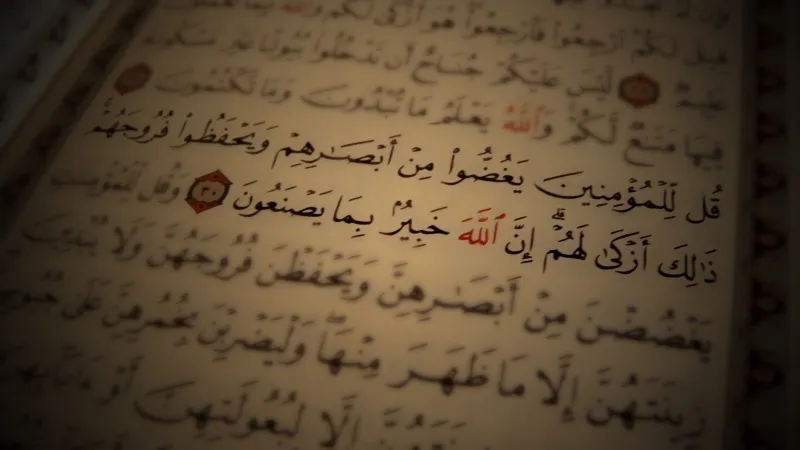 قِيلَ لَكُمُ ٱرْجِعُوا۟ فَٱرْجِعُوا۟ هُوَ أَزْكَىٰ لَكُمْ وَٱللَّهُ بِمَا تَعْمَلُونَ
عَلِيمٌ لَّيْسَ عَلَيْكُمْ جُنَاحٌ أَن تَدْخُلُوا۟ بُيُوتًا غَيْرَ مَسْكُونَةٍ
فِيهَا مَتَٰعٌ لَّكُمْ وَٱللَّهُ يَعْلَمُ مَا تُبْدُونَ وَمَا تَكْتُمُونَ
قُل لِّلْمُؤْمِنِينَ يَغُضُّوا۟ مِنْ أَبْصَٰرِهِمْ وَيَحْفَظُوا۟ فُرُوجَهُمْ
ذَٰلِكَ أَزْكَىٰ لَهُمْ إِنَّ ٱللَّهَ خَبِيرٌۢ بِمَا يَصْنَعُونَ ٣٠ وَقُل لِّلْمُؤْمِنَٰتِ
يَغْضُضْنَ مِنْ أَبْصَٰرِهِنَّ وَيَحْفَظْنَ فُرُوجَهُنَّ وَلَا يُبْدِينَ
زِينَتَهُنَّ إِلَّا مَا ظَهَرَ مِنْهَا وَلْيَضْرِبْنَ بِخُمُرِهِنَّ عَلَىٰ جُيُوبِهِنَّ
إِلَّا لِبُعُولَتِهِنَّ أَوْ